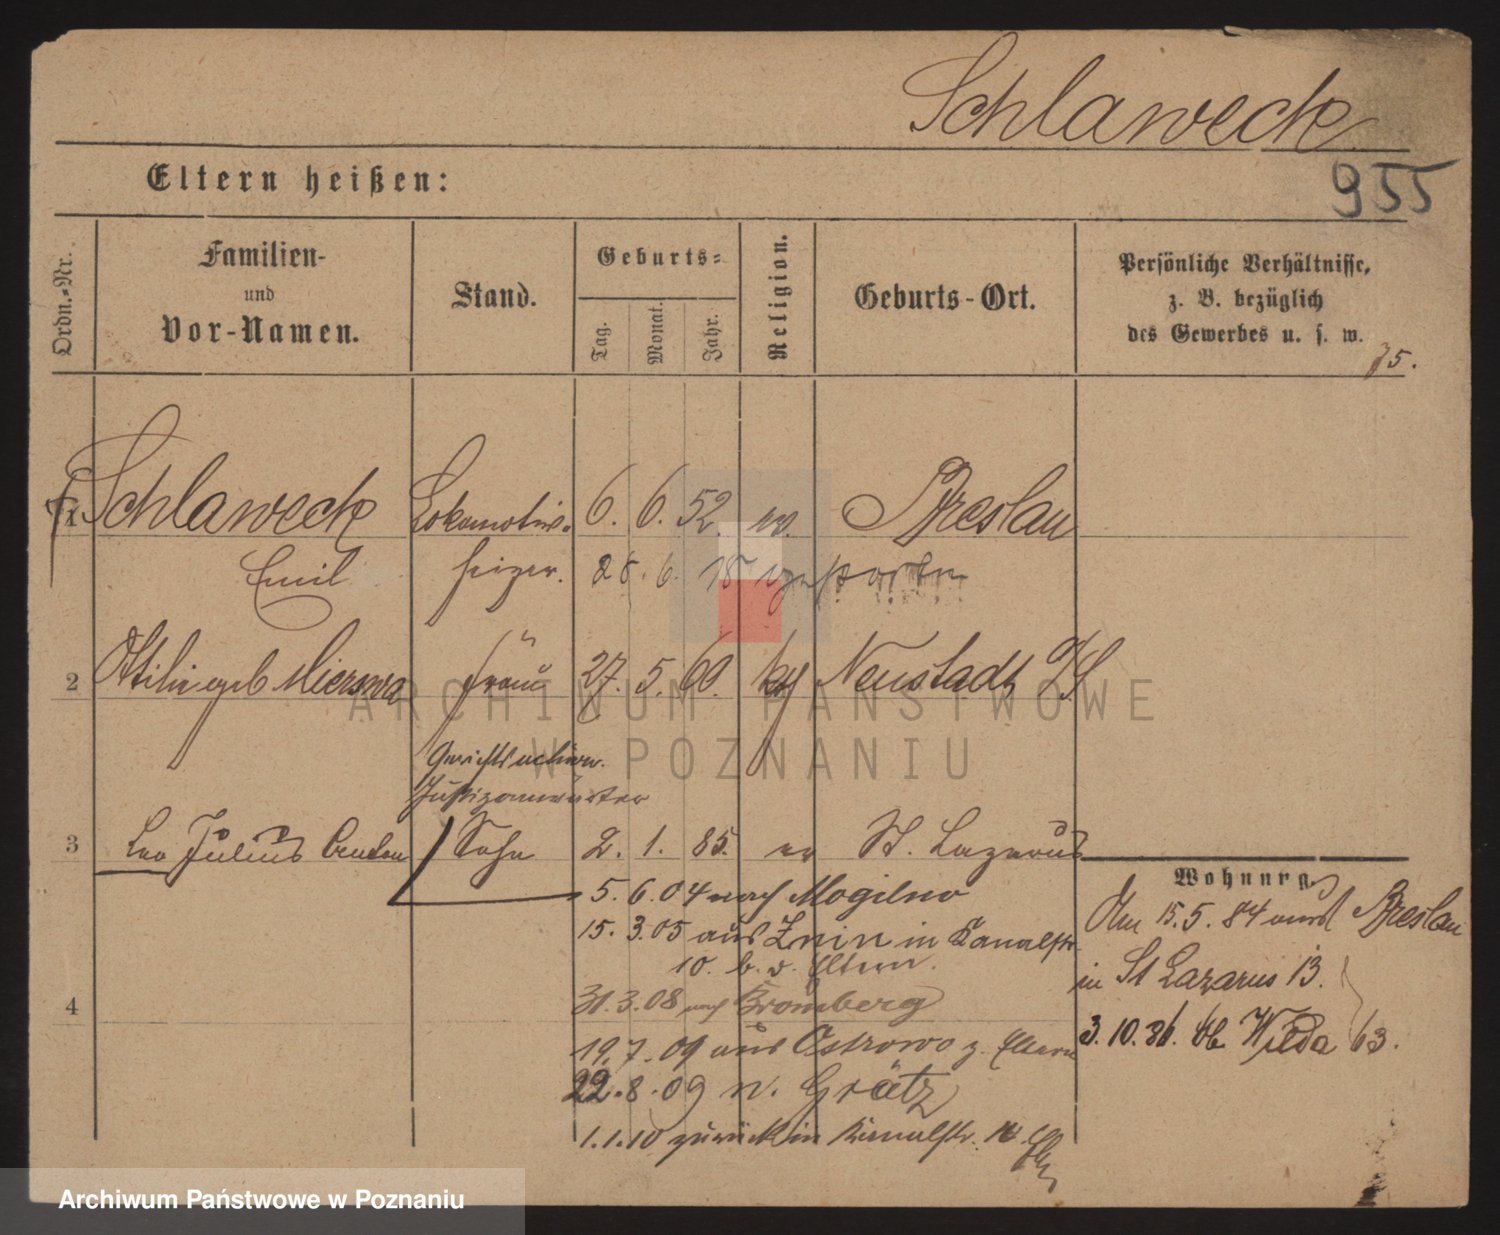 Schlaweck
955
Eltern heißen:
Ordn.-Nr.
Familien-
und
Vor-Namen.
Stand.
Geburts-
Tag.
Monat.
Jahr.
Religion.
Geburts-Ort.
Persönliche Verhältnisse,
z. B. bezüglich
des Gewerbes u. s. w.
75.
1 Schlaweck Lokomotiv- 6. 6. 52. ev. Breslau
Emil heizer. 6. 15 gestorben
2 Ottilie geb Mierswa Frau 27. 5. 60. kath Neustadt O/S
Justizanwärter
3 Leo Julius Sohn 2. 1. 85. ev St. Lazarus
Wohnung
5. 6. 04 nach Mogilno
Am 15. 5. 84 aus Breslau
15. 3. 05 aus Znin in Kanalstr.
10. b. d. Eltern.
in St Lazarus 13.
4
31. 3. 08 nach Bromberg
3. 10. 86. Wilda 63.
19. 7. 09 aus Ostrowo z. Eltern
22. 8. 09 n. Grätz
1. 1. 10 zurück in Kanalstr.
ARCHIWUM PAŃSTWOWE
W POZNANIU
Archiwum Państwowe w Poznaniu